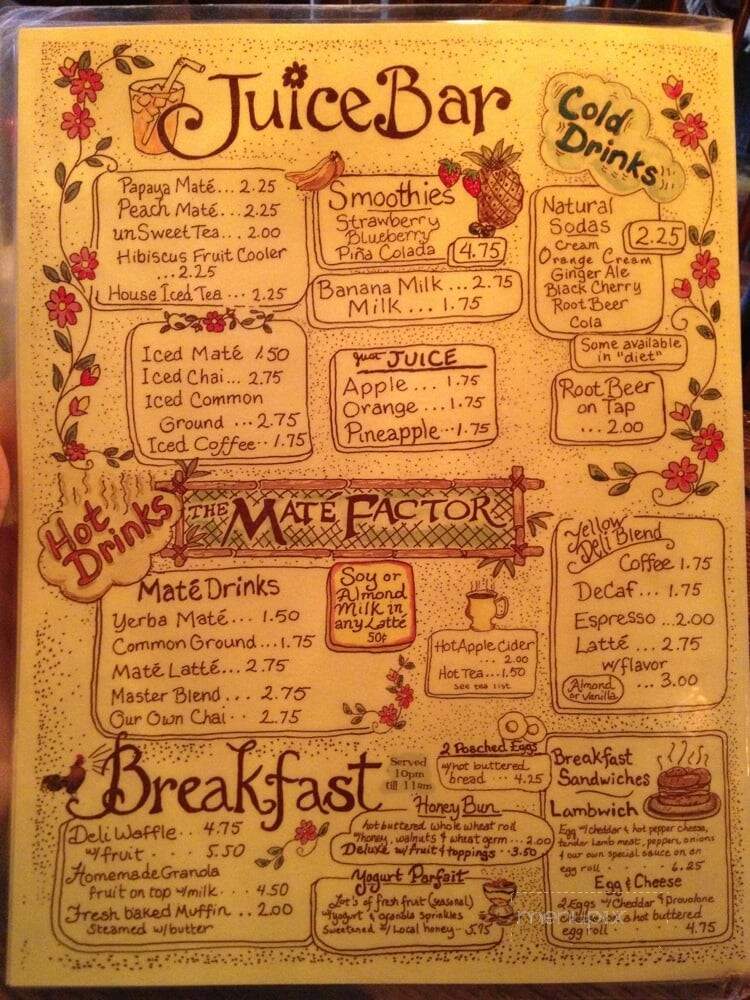 Juice Bar
Cold
Drinks
Papaya Maté... 2.25
Peach Maté... 2.25
unSweet Tea... 2.00
Hibiscus Fruit Cooler
... 2.25
House Iced Tea ... 2.25
Smoothies
Strawberry
Blueberry
Piña Colada
4.75
Banana Milk ... 2.75
Milk ... 1.75
Natural
Sodas
2.25
Cream
Orange Cream
Ginger Ale
Black Cherry
Root Beer
Cola
Some available
in "diet"
Root Beer
on Tap
... 2.00
Iced Maté 1.50
Iced Chai... 2.75
Iced Common
Ground ... 2.75
Iced Coffee.. 1.75
just JUICE
Apple ... 1.75
Orange ... 1.75
Pineapple...1.75
Hot
Drinks
THE MATÉ FACTOR
Maté Drinks
Yerba Maté... 1.50
Common Ground...1.75
Maté Latté... 2.75
Master Blend ... 2.75
Our Own Chai .. 2.75
Soy or
Almond
Milk in
any Latté
50¢
Hot Apple Cider
... 2.00
Hot Tea...1.50
see tea list
Yellow
Deli Blend
Coffee 1.75
DeCaf... 1.75
Espresso ...2.00
Latté ... 2.75
w/flavor
Almond
or Vanilla
... 3.00
Breakfast
Served
10pm
till 11am
Deli Waffle.. 4.75
w/fruit . . 5.50
Homemade Granola
fruit on top w/milk . . . 4.50
Fresh baked Muffin .. 2.00
Steamed w/butter
2 Poached Eggs
w/hot buttered
bread ... 4.25
Honey Bun
hot buttered whole wheat roll
w/honey, walnuts & wheat germ... 2.00
Deluxe w/fruit & toppings ..3.50
Yogurt Parfait
Lot's of fresh fruit (seasonal)
w/yogurt & granola sprinkles
Sweetened w/Local honey - 5.95
Breakfast
Sandwiches
Lambwich
Egg w/cheddar & hot pepper cheese,
tender lamb meat, peppers, onions
& our own special sauce on an
egg roll . . . 6.25
Egg & Cheese
2 Eggs w/Cheddar & Provolone
cheese on a hot buttered
egg roll . . . 4.75
menupix